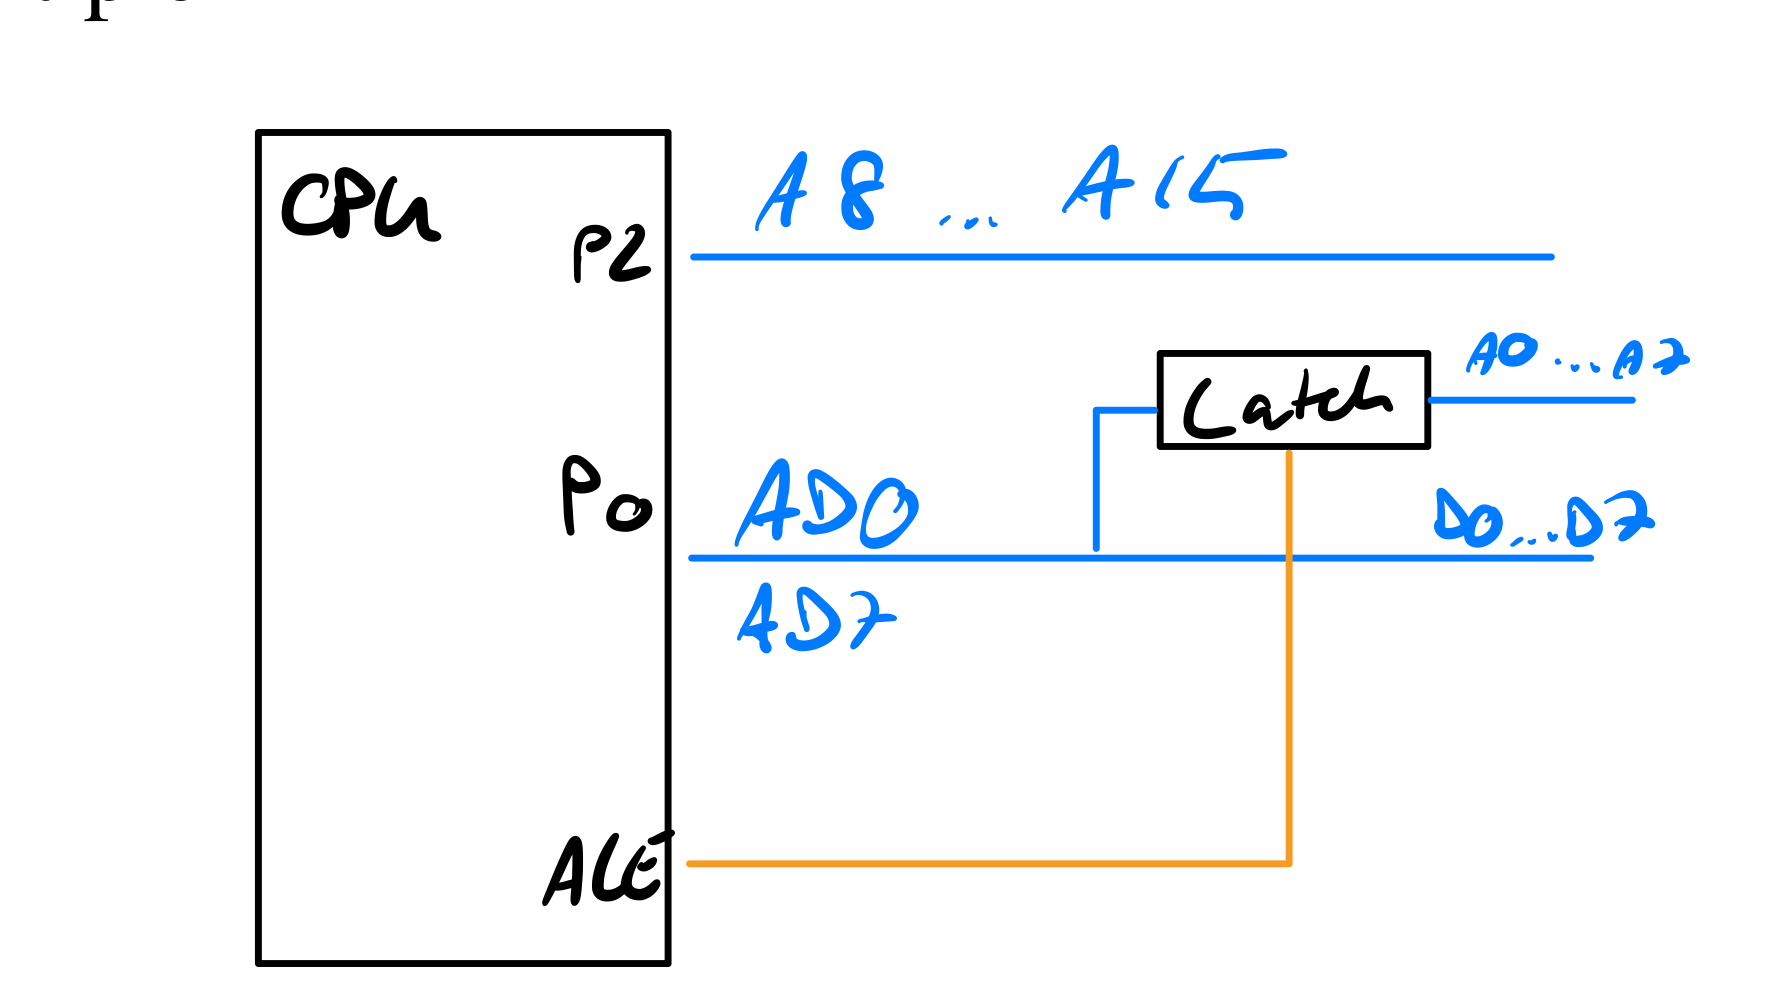 CPU
P2
A8 ... A15
Latch
A0 ... A7
P0
AD0
D0...D7
AD7
ALE